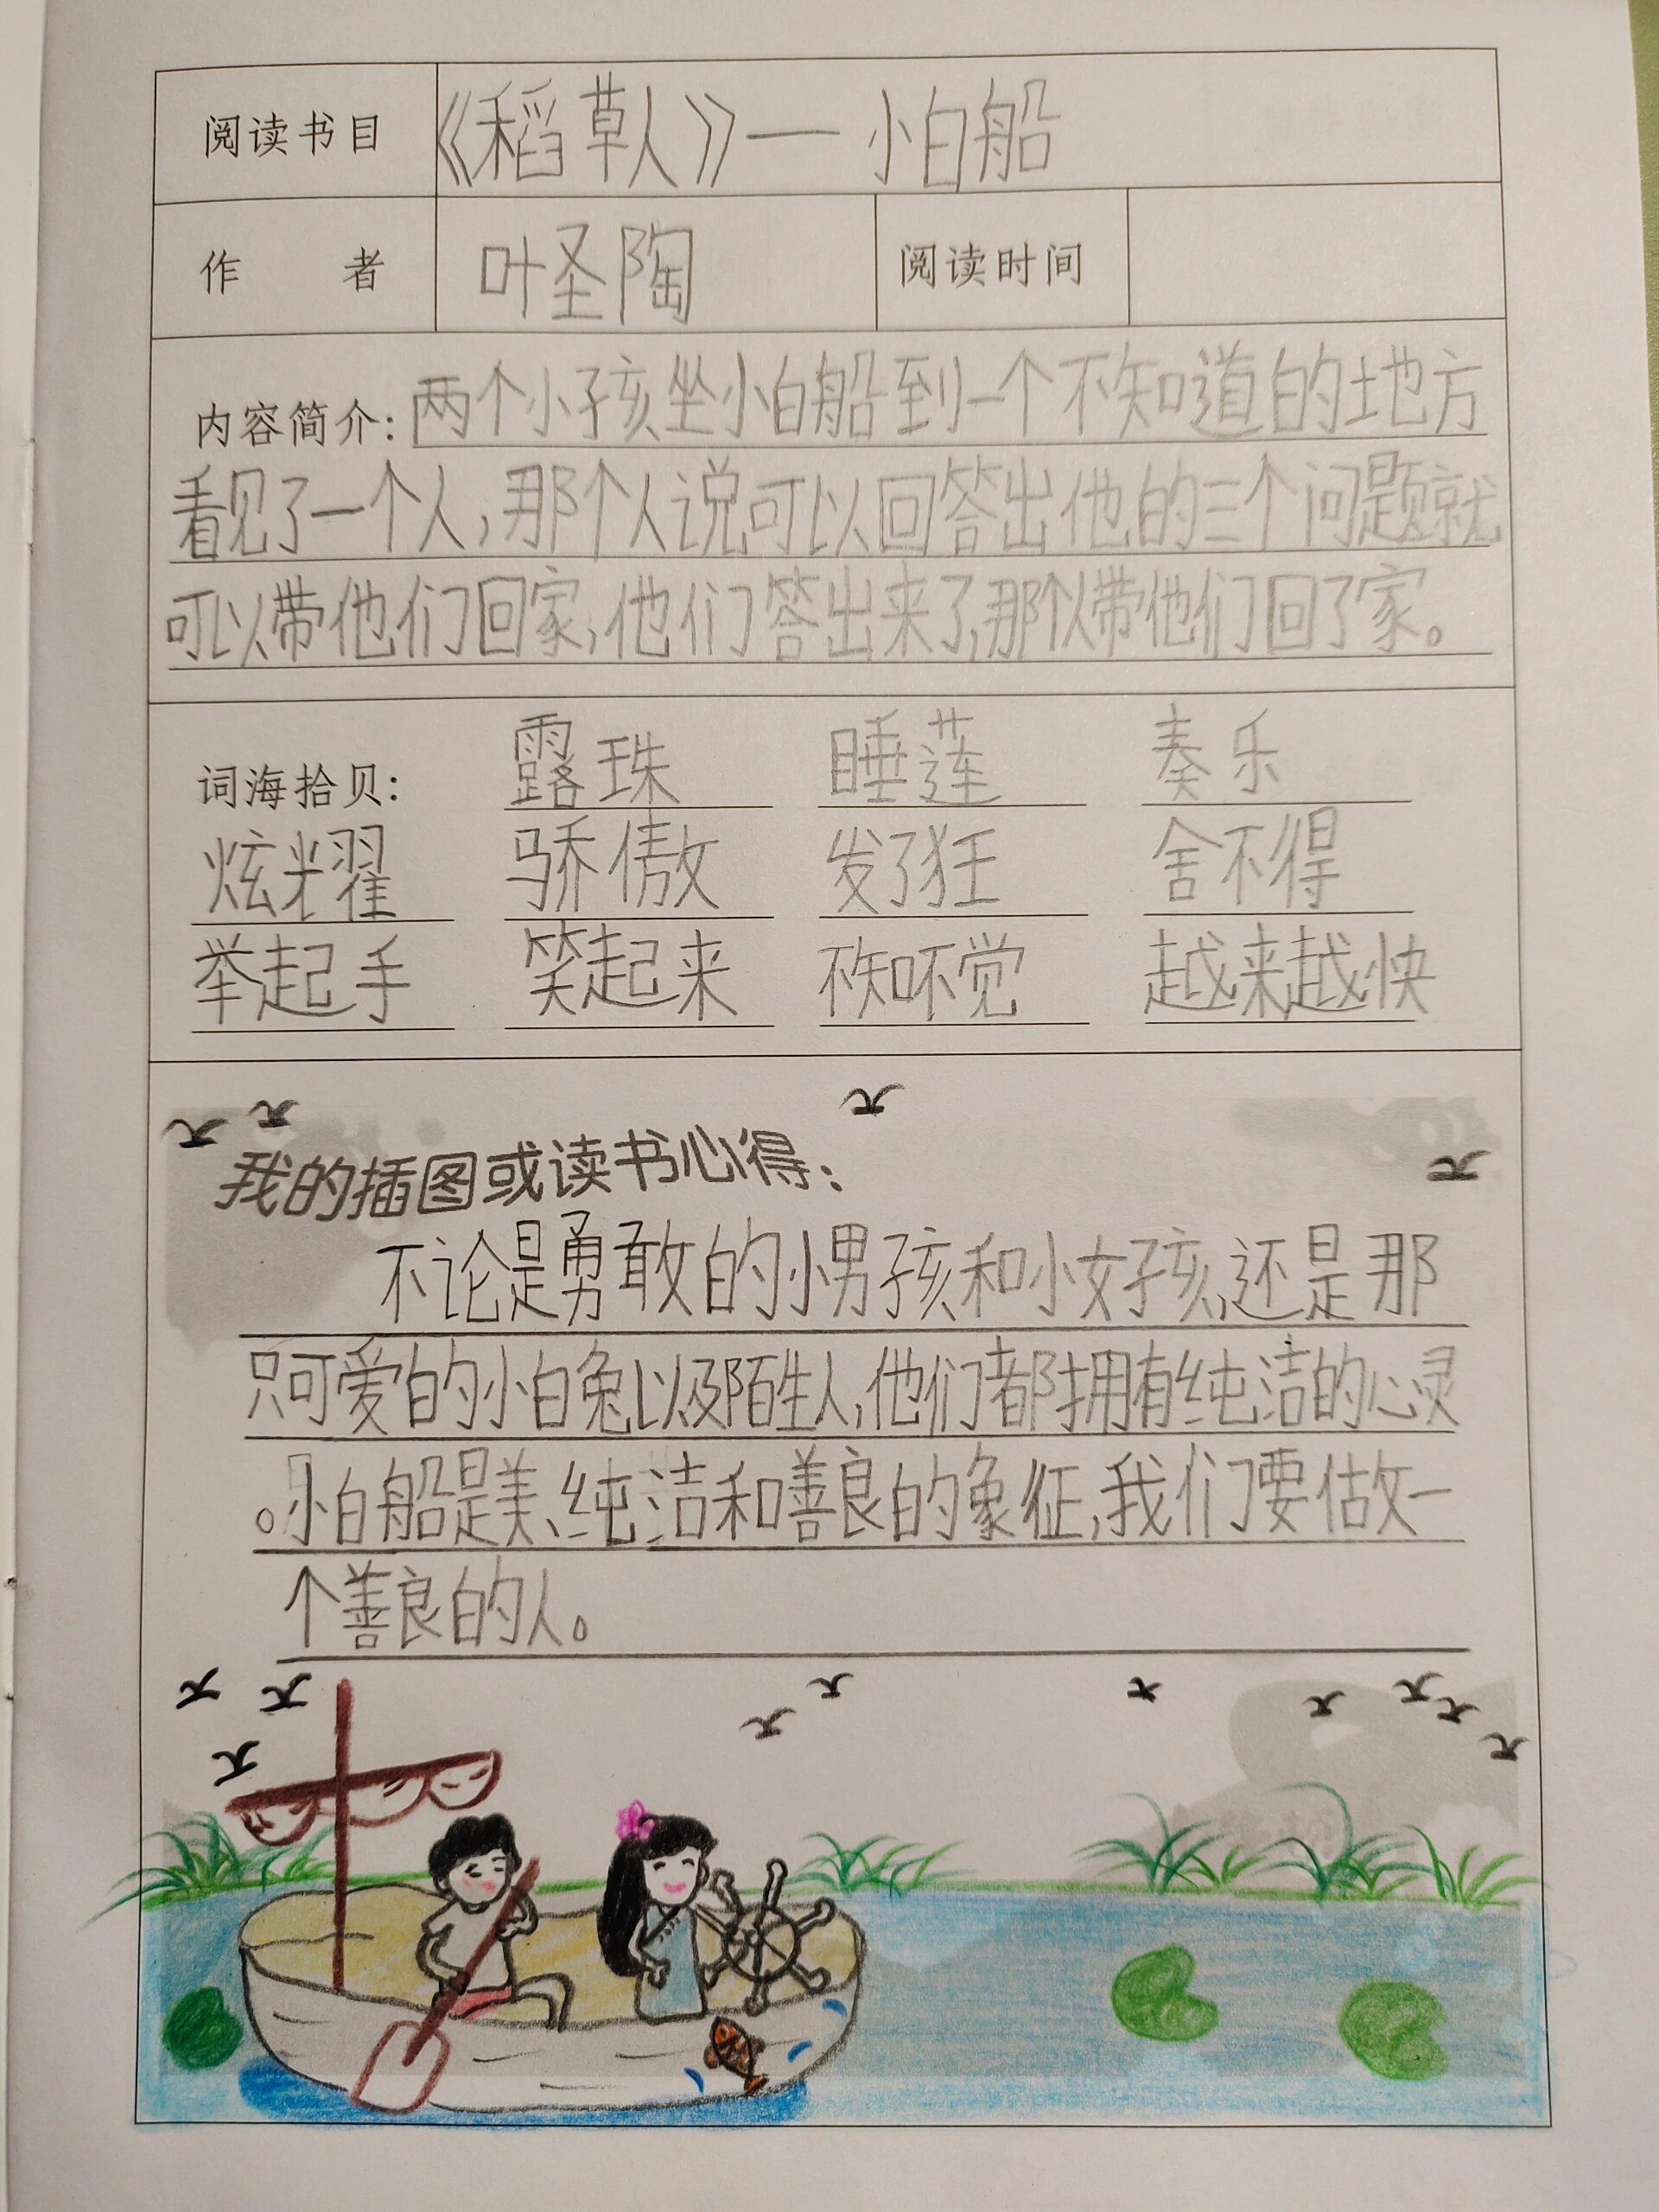 阅读书目 《稻草人》—小白船
作者 叶圣陶 阅读时间
内容简介：两个小孩坐小白船到一个不知道的地方
看见了一个人，那个人说可以回答出他的三个问题就
可以带他们回家，他们答出来了，那个人带他们回了家。
词海拾贝： 露珠 睡莲 奏乐
炫耀 骄傲 发了狂 舍不得
举起手 笑起来 不知不觉 越来越快
我的插图或读书心得：
不论是勇敢的小男孩和小女孩，还是那
只可爱的小白兔以及陌生人，他们都拥有纯洁的心灵
。小白船是美、纯洁和善良的象征，我们要做一
个善良的人。